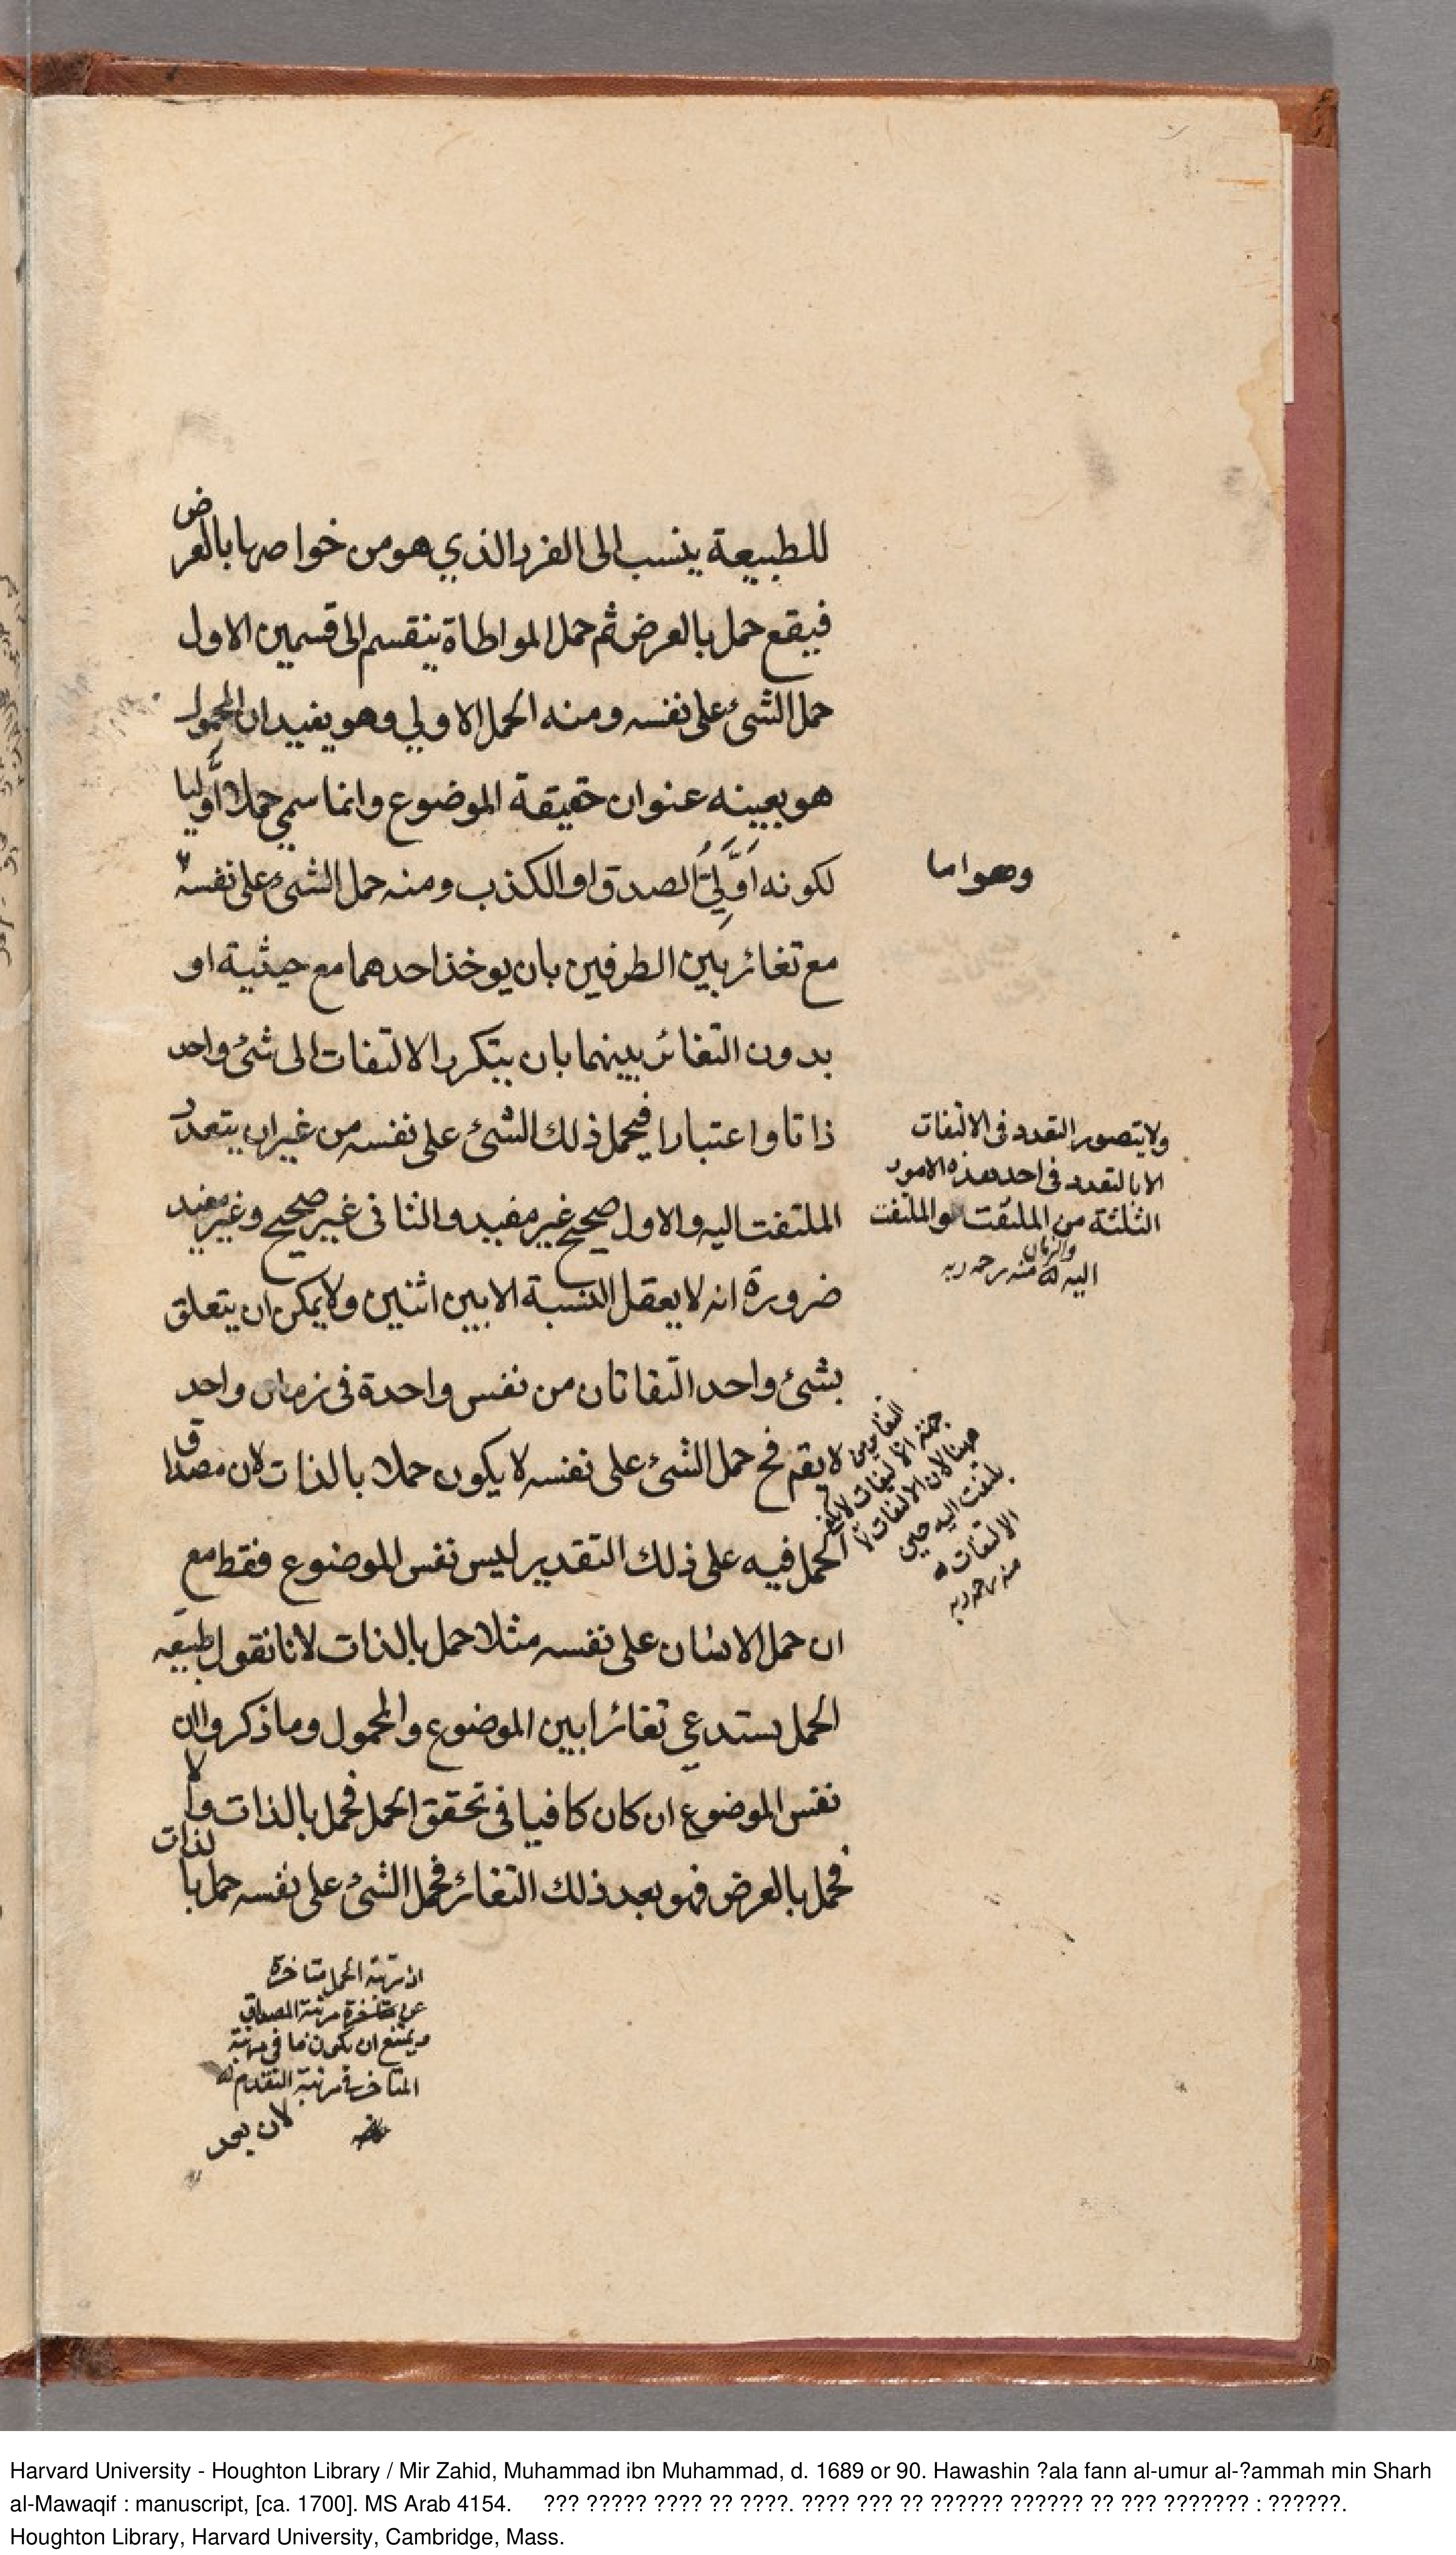 للطبيعة ينسب الى الفرد الذي هو من خواصها بالعرض
فيقع حمل بالعرض ثم حمل المواطاة ينقسم الى قسمين الاول
حمل الشئ على نفسه ومنه الحمل الاولي وهو يفيد ان المحمول
هو بعينه عنوان حقيقة الموضوع وانما سمي حملا اَوَّليا
لكونه اَوَّلِيَّ الصدق او الكذب ومنه حمل الشئ على نفسه
وهو اما
مع تغائر بين الطرفين بان يوخذ احدهما مع حيثية او
بدون التغائر بينهما بان يتكرر الالتفات الى شئ واحد
ذاتا واعتبارا فيحمل ذلك الشئ على نفسه من غير ان يتعدد
الملتفت اليه والاول صحيح غير مفيد والثانى غير صحيح وغير مفيد
ضرورة انه لا يعقل النسبة الا بين اثنين ولا يمكن ان يتعلق
بشئ واحد التفاتان من نفس واحدة فى زمان واحد
فح حمل الشئ على نفسه لا يكون حملا بالذات لان مصداق
الحمل فيه على ذلك التقدير ليس نفس الموضوع فقط مع
ان حمل الانسان على نفسه مثلا حمل بالذات لانا نقول طبيعة
الحمل يستدعي تغائرا بين الموضوع والمحمول وما ذكروا ان
نفس الموضوع ان كان كافيا فى تحقق الحمل فحمل بالذات والا
فحمل بالعرض فهو بعد ذلك التغائر فحمل الشئ على نفسه حمل بالذات
ولا يتصور التعدد فى الالتفات
الا بالتعدد فى احد هذه الامور
الثلثة من الملتفت والملتفت
اليه والزمان منه رحمه ربه
لا يقم
ههنا لان الالتفات لا
يلتفت اليه حين
الالتفات
منه رحمه ربه
اذ مرتبة الحمل متاخرة
عن مرتبة المصداق
ويمتنع ان يكون ما فى مرتبة
المتاخر فى مرتبة التقدم
لان بعد
Harvard University - Houghton Library / Mir Zahid, Muhammad ibn Muhammad, d. 1689 or 90. Hawashin ?ala fann al-umur al-?ammah min Sharh
al-Mawaqif : manuscript, [ca. 1700]. MS Arab 4154. ??? ????? ???? ?? ????. ???? ??? ?? ?????? ?????? ?? ??? ??????? : ??????.
Houghton Library, Harvard University, Cambridge, Mass.